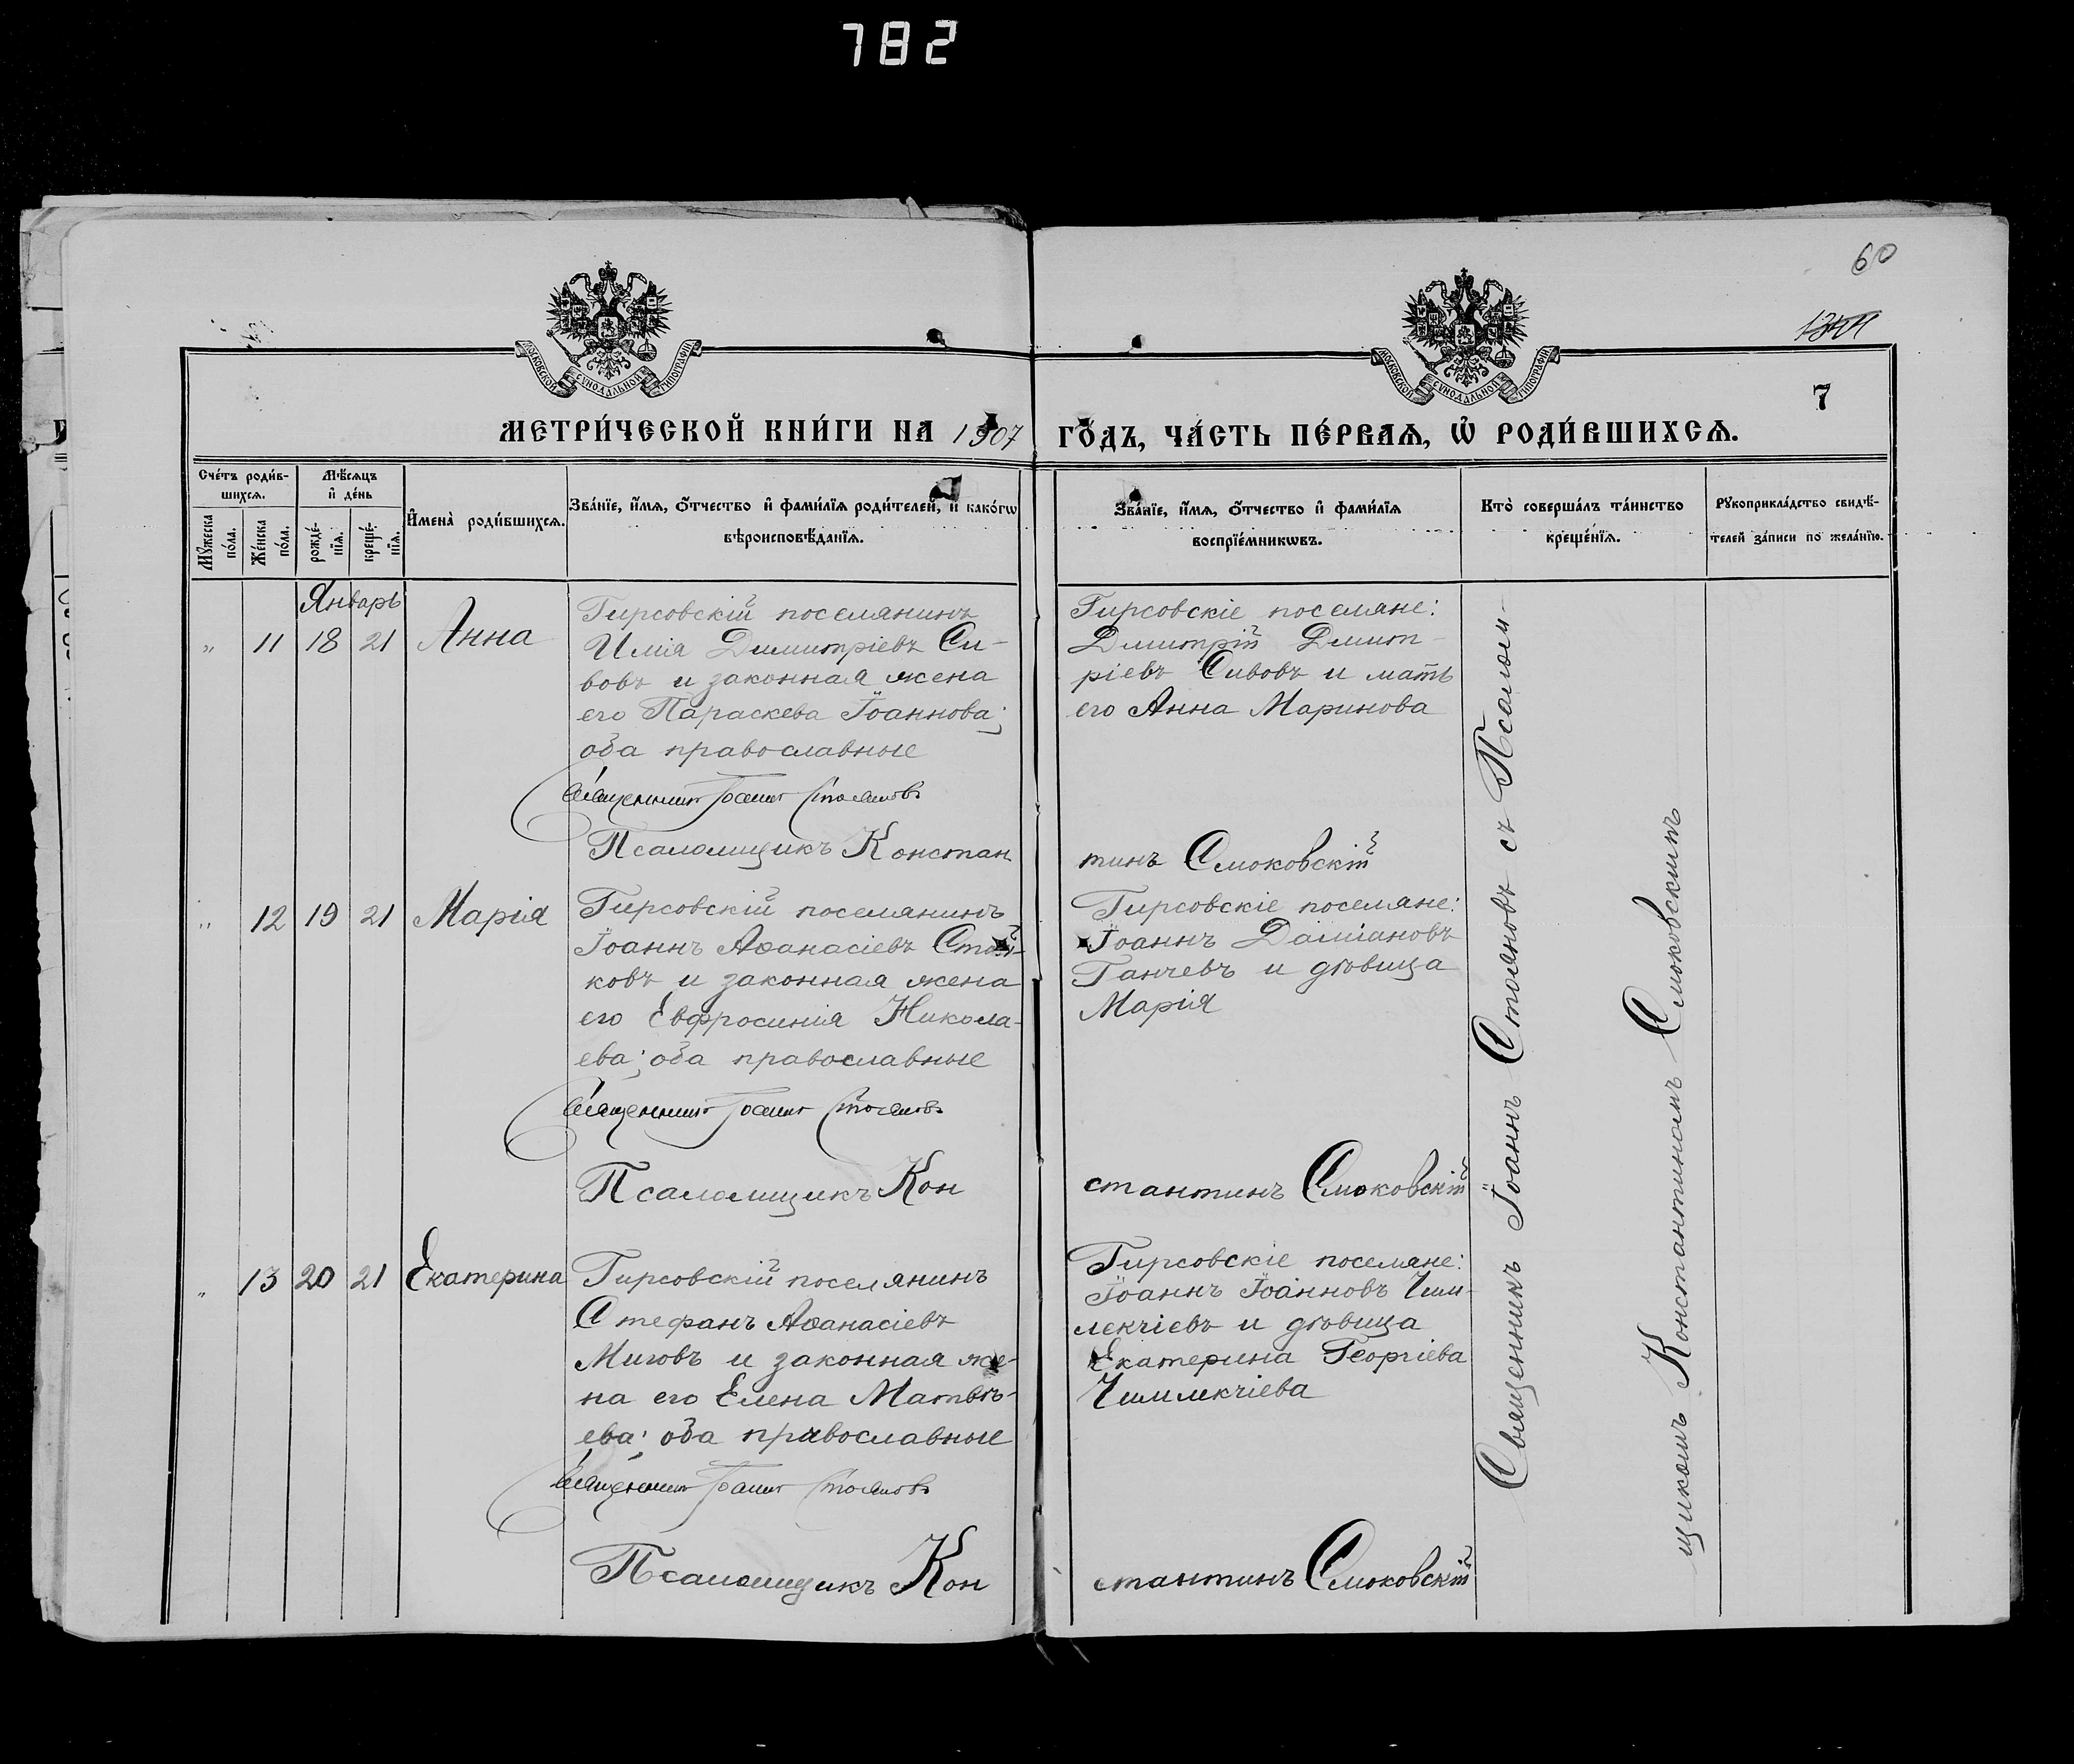 782
60
1344
МОСКОВСКОЙ СУНОДАЛЬНОЙ ТИПОГРАФІИ
МОСКОВСКОЙ СУНОДАЛЬНОЙ ТИПОГРАФІИ
7
МЕТРИ́ЧЕСКОЙ КНИ́ГИ НА 1907 ГО́ДЪ, ЧА́СТЬ ПЕ́РВАѦ, Ѡ҆ РОДИ́ВШИХСѦ.
Сче́тъ роди́в-
шихсѧ.
Мꙋ́жеска
по́ла.
Же́нска
по́ла.
Мѣ́сѧцъ
и҆ де́нь
рожде́-
нїѧ.
креще́-
нїѧ.
И҆мена̀ роди́вшихсѧ.
Зва́нїе, и҆́мѧ, ѻ҆́тчество и҆ фами́лїѧ роди́телей, и҆ како́гѡ
вѣроисповѣ́данїѧ.
Зва́нїе, и҆́мѧ, ѻ҆́тчество и҆ фами́лїѧ
воспрїе́мникѡвъ.
Кто̀ соверша́лъ та́инство
креще́нїѧ.
Рꙋкоприкла́дство свидѣ́-
телей за́писи по жела́нїю.
Январь
" 11 18 21 Анна
Гирсовскій поселянинъ
Илія Димитріевъ Си-
вовъ и законная жена
его Параскева Іоаннова;
оба православные
Священникъ Іоаннъ Стояновъ
Псаломщикъ Констан
Гирсовскіе поселяне:
Димитрій Димит-
ріевъ Сивовъ и мать
его Анна Маринова
тинъ Смоковскій
" 12 19 21 Марія
Гирсовскій поселянинъ
Іоаннъ Аѳанасіевъ Стой-
ковъ и законная жена
его Евфросинія Никола-
ева; оба православные
Священникъ Іоаннъ Стояновъ
Псаломщикъ Кон
Гирсовскіе поселяне:
Іоаннъ Даміановъ
Ганчевъ и дѣвица
Марія
стантинъ Смоковскій
" 13 20 21 Екатерина
Гирсовскій поселянинъ
Стефанъ Аѳанасіевъ
Миговъ и законная же-
на его Елена Матвѣ-
ева; оба православные
Священникъ Іоаннъ Стояновъ
Псаломщикъ Кон
Гирсовскіе поселяне:
Іоаннъ Іоанновъ Чим-
лекчіевъ и дѣвица
Екатерина Георгіева
Чимлекчіева
стантинъ Смоковскій
Священникъ Іоаннъ Стояновъ съ Псалом-
щикомъ Константиномъ Смоковскимъ